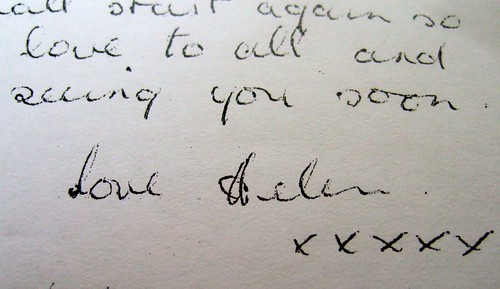 hall start again so
love to all and
seeing you soon.
love Helen.
xxxxx